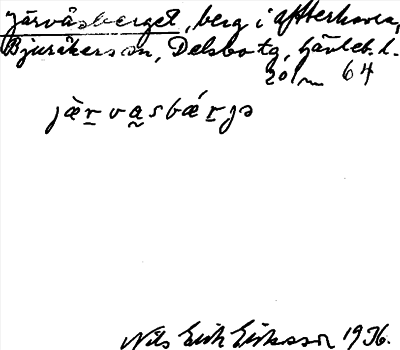 Järvåsberget, berg i afterkorn,
Bjuråkers sn, Delsbo tg, Gävleb. l.
201 m 64
jæ̀r̲va̰sbǽr̲jə
Nils Erik Eriksson 1936.